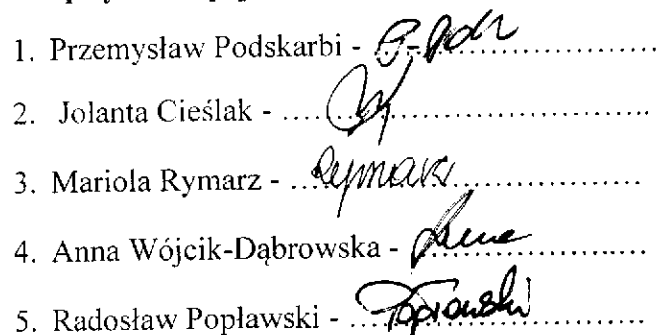 1. Przemysław Podskarbi - ........................
2. Jolanta Cieślak - ........................
3. Mariola Rymarz - ... Rymarz ........................
4. Anna Wójcik-Dąbrowska - ........................
5. Radosław Popławski - ... Popławski ........................